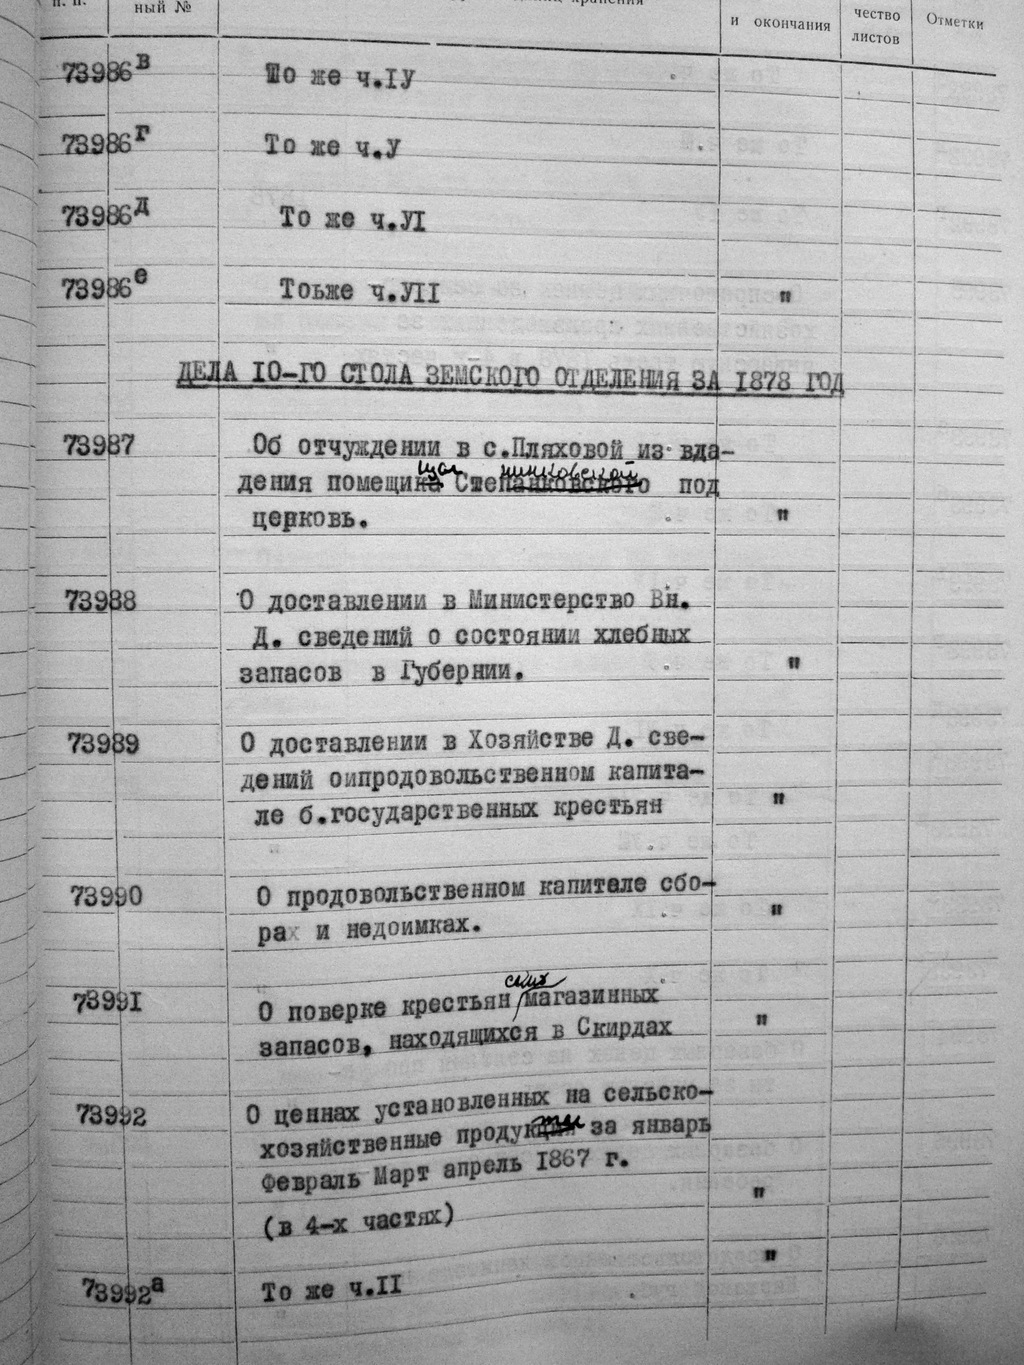 п. п. ный № хранения и окончания чество листов Отметки
73986в То же ч.IУ
73986г То же ч.У
73986д То же ч.УI
73986е Тоьже ч.УII "
ДЕЛА IO-ГО СТОЛА ЗЕМСКОГО ОТДЕЛЕНИЯ ЗА I878 ГОД
73987 Об отчуждении в с.Пляховой из вда-
дения помещика Степанковского под
церковь. "
73988 О доставлении в Министерство Вн.
Д. сведений о состоянии хлебных
запасов в Губернии. "
73989 О доставлении в Хозяйстве Д. све-
дений оипродовольственном капита-
ле б.государственных крестьян "
73990 О продовольственном капитале сбо-
рах и недоимках. "
73991 О поверке крестьян магазинных
запасов, находящихся в Скирдах "
73992 О ценнах установленных на сельско-
хозяйственные продукты за январь
Февраль Март апрель I867 г.
(в 4-х частях) "
73992а То же ч.II "